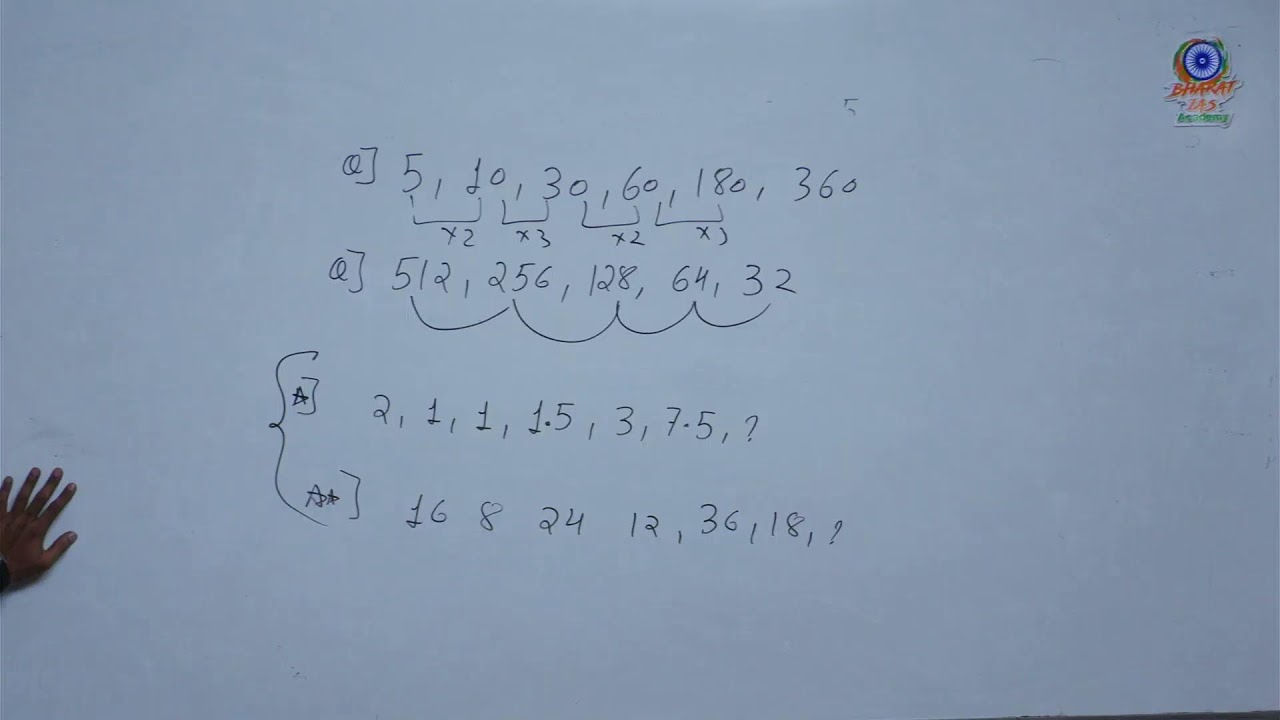 5
BHARAT
IAS
Academy
Q] 5, 10, 30, 60, 180, 360
×2 ×3 ×2 ×3
Q] 512, 256, 128, 64, 32
★] 2, 1, 1, 1.5, 3, 7.5, ?
★★] 16 8 24 12, 36, 18, ?